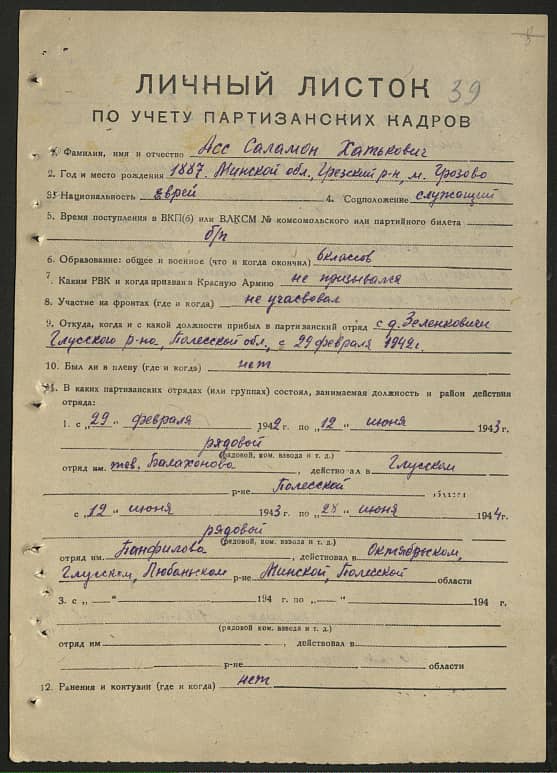 8
ЛИЧНЫЙ ЛИСТОК 39
ПО УЧЕТУ ПАРТИЗАНСКИХ КАДРОВ
1. Фамилия, имя и отчество Асс Саламон Хатькович
2. Год и место рождения 1887. Минской обл., Грезский р-н, м. Грозово
3. Национальность еврей 4. Соцположение служащий
5. Время поступления в ВКП(б) или ВЛКСМ № комсомольского или партийного билета
б/п
6. Образование: общее и военное (что и когда окончил) 6 классов
7. Каким РВК и когда призван в Красную Армию не призывался
8. Участие на фронтах (где и когда) не учасвовал
9. Откуда, когда и с какой должности прибыл в партизанский отряд с д. Зеленковичи
Глусского р-на, Полесской обл., с 29 февраля 1942 г.
10. Был ли в плену (где и когда) нет
11. В каких партизанских отрядах (или группах) состоял, занимаемая должность и район действия
отряда:
1. с „29" февраля 1942 г. по „12" июня 1943 г.
рядовой
(рядовой, ком. взвода и т. д.)
отряд им. тов. Балахонова, действовал в Глусском
р-не Полесской области
с „12" июня 1943 г. по „28" июня 1944 г.
рядовой
(рядовой, ком. взвода и т. д.)
отряд им. Панфилова, действовал в Октябрьском,
Глусском, Любаньском р-не Минской, Полесской области
3. с „—" 194 г. по „—" 194 г.
(рядовой, ком. взвода и т. д.)
отряд им , действовал в
р-не области
12. Ранения и контузии (где и когда) нет